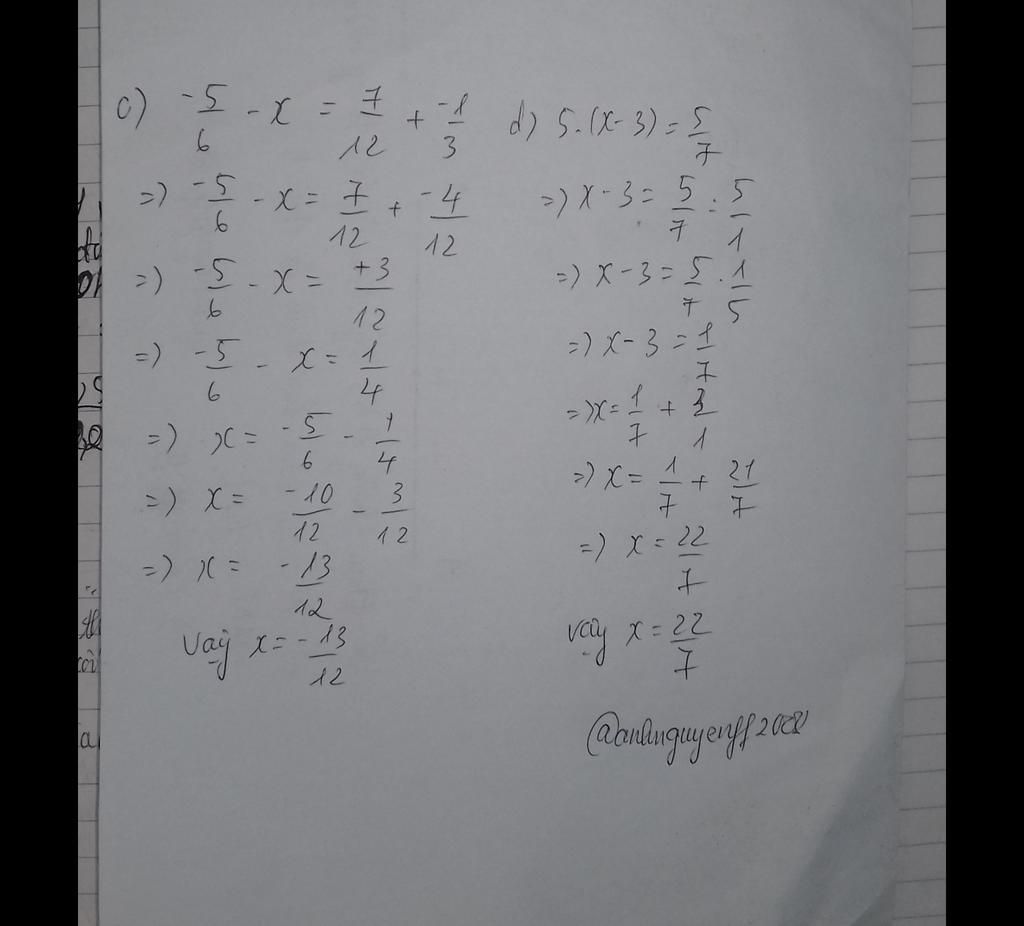 c) -5/6 - x = 7/12 + -1/3
=) -5/6 - x = 7/12 + -4/12
=) -5/6 - x = +3/12
=) -5/6 - x = 1/4
=) x = -5/6 - 1/4
=) x = -10/12 - 3/12
=) x = -13/12
Vậy x = -13/12
d) 5.(x-3) = 5/7
=) x-3 = 5/7 : 5/1
=) x-3 = 5/7 . 1/5
=) x-3 = 1/7
=) x = 1/7 + 3/1
=) x = 1/7 + 21/7
=) x = 22/7
vậy x = 22/7